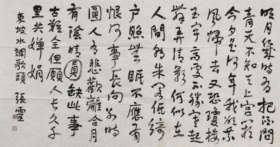 明月幾時有把酒問
青天不知天上宮闕
今夕是何年我欲乘
風歸去又恐瓊樓
玉宇高處不勝寒起
舞弄清影何似在
人間轉朱閣低綺
戶照無眠不應有
恨何事長向別時
圓人有悲歡離合月
有陰晴圓缺此事
古難全但願人長久千
里共嬋娟
東坡水調歌頭 張